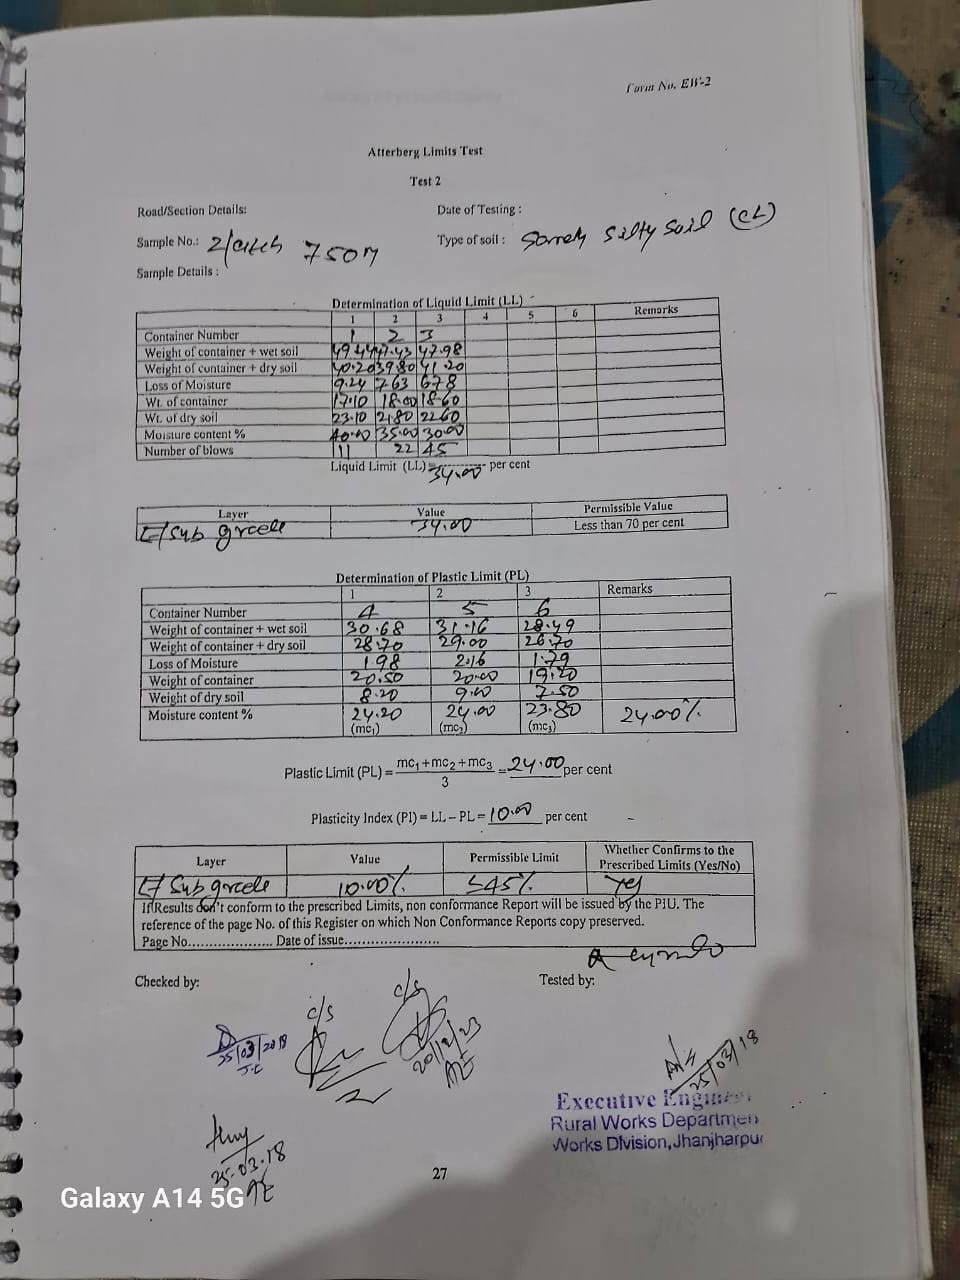 Form No. EW-2
Atterberg Limits Test
Test 2
Road/Section Details:
Date of Testing :
Sample No.: 2/ 750m
Type of soil : silty soil (CL)
Sample Details :
Determination of Liquid Limit (LL)
1 2 3 4 5 6 Remarks
Container Number 1 2 3
Weight of container + wet soil 49.44 47.43 47.98
Weight of container + dry soil 40.20 39.80 41.20
Loss of Moisture 9.24 7.63 6.78
Wt. of container 17.10 18.00 18.60
Wt. of dry soil 23.10 21.80 22.60
Moisture content % 40.00 35.00 30.00
Number of blows 11 22 45
Liquid Limit (LL)= 34.00 per cent
Layer Value Permissible Value
E/Sub grade 34.00 Less than 70 per cent
Determination of Plastic Limit (PL)
1 2 3 Remarks
Container Number 4 5 6
Weight of container + wet soil 30.68 31.16 28.49
Weight of container + dry soil 28.70 29.00 26.70
Loss of Moisture 1.98 2.16 1.79
Weight of container 20.50 20.00 19.20
Weight of dry soil 8.20 9.00 7.50
Moisture content % 24.20 24.00 23.80 24.00%
(mc1) (mc2) (mc3)
Plastic Limit (PL) = mc1+mc2+mc3 = 24.00 per cent
3
Plasticity Index (PI) = LL – PL = 10.00 per cent
Layer Value Permissible Limit Whether Confirms to the Prescribed Limits (Yes/No)
E/Sub grade 10.00% ≤45% Yes
If Results don't conform to the prescribed Limits, non conformance Report will be issued by the PIU. The
reference of the page No. of this Register on which Non Conformance Reports copy preserved.
Page No................... Date of issue.......................
Checked by:
Tested by:
c/s
c/s
25/03/2018
J.E
20/12/23
AE
25/03/18
Executive Engineer
Rural Works Departmen
Works Division, Jhanjharpur
25.03.18
AE
27
Galaxy A14 5G